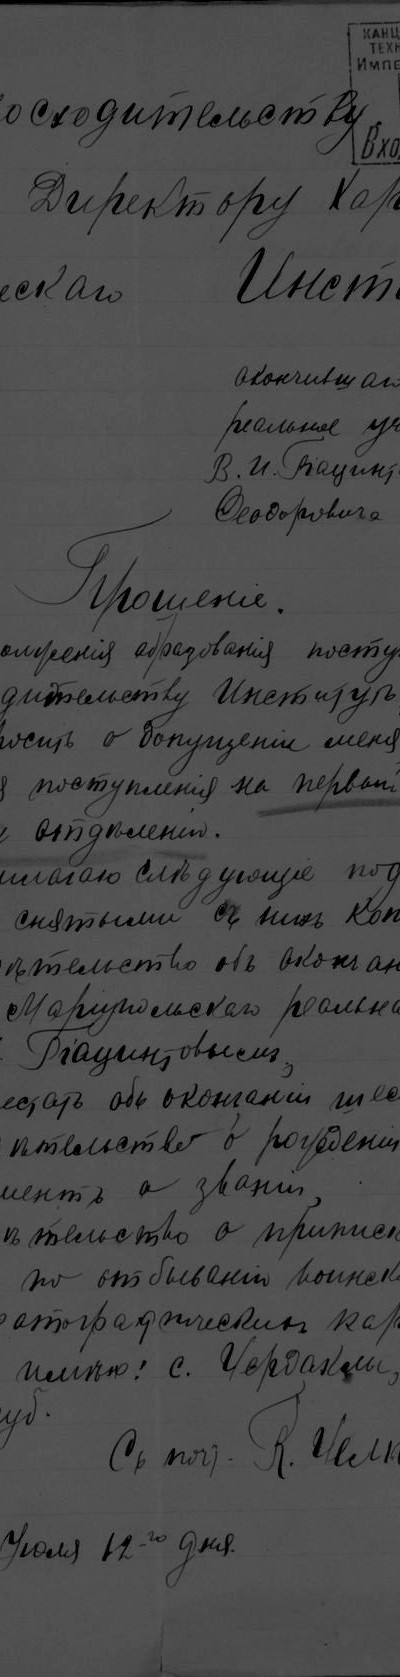 КАНЦ
ТЕХН
ИМПЕ
Вхо
осходительству
Директору Хар
ескаго Инсти
окончившаго
реальное уч
В. И. Гіацинт
Ѳеодоровича
Прошеніе.
образованія посту
дительству Институтъ
росить о допущеніи меня
я поступленія на первый
отдѣленіи.
илагаю слѣдующіе под
снятыми съ нихъ коп
ѣтельство объ окончан
Маріупольскаго реально
Гіацинтовымъ,
естатъ объ окончаніи шес
ѣтельство о рожденіи
ментъ о званіи,
ѣтельство о приписк
по отбыванію воинск
фотографическихъ кар
имѣю: с. Чердаклы,
уб.
Съ почт. К. Челп
Іюля 12-го дня.